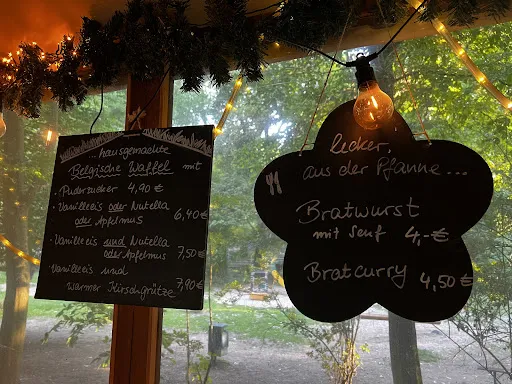 ...hausgemachte
Belgische Waffel mit
• Puderzucker 4,90 €
• Vanilleeis oder Nutella
oder Apfelmus 6,40 €
• Vanilleeis und Nutella
oder Apfelmus 7,50 €
Vanilleeis und
warmer Kirschgrütze 7,90 €
lecker,
aus der Pfanne...
Bratwurst
mit Senf 4,-€
Bratcurry 4,50 €